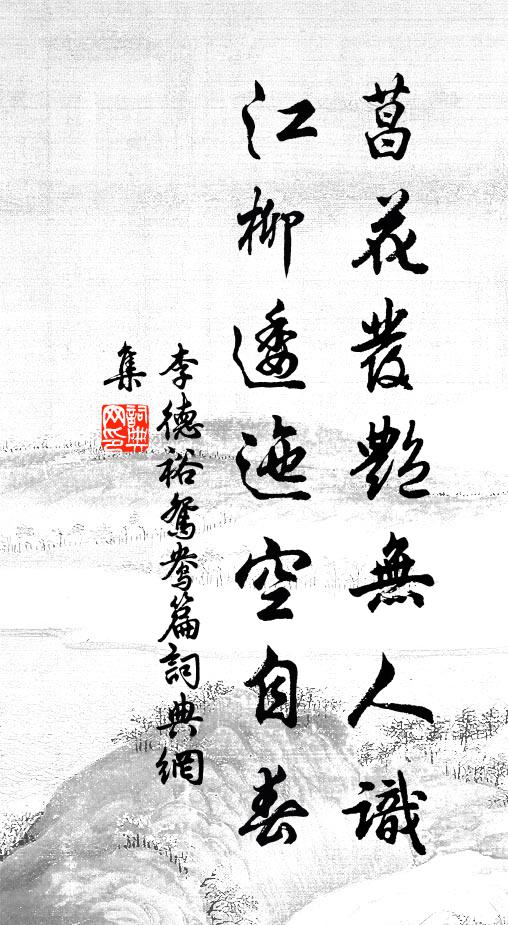 菖花發艷無人識
江柳逶迤空自春
李德裕鴛鴦篇詞典網
集
詞典网印